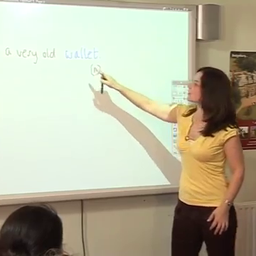 a very old wallet